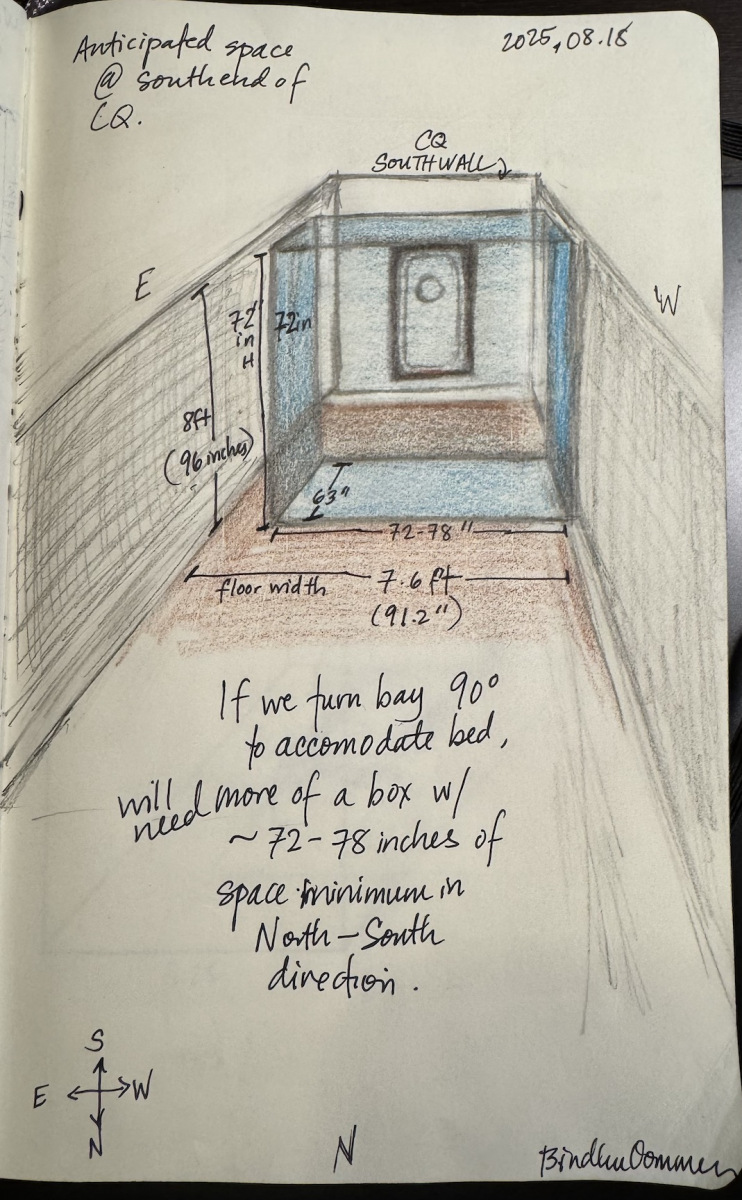 Anticipated space
@ south end of
CQ.
2025,08.18
CQ
SOUTHWALL
E
W
72"
in
H
72in
8ft
(96 inches)
63"
72-78"
floor width
7.6 ft
(91.2")
If we turn bay 90°
to accomodate bed,
will need more of a box w/
~72-78 inches of
space minimum in
North-South
direction.
S
E W
N
N